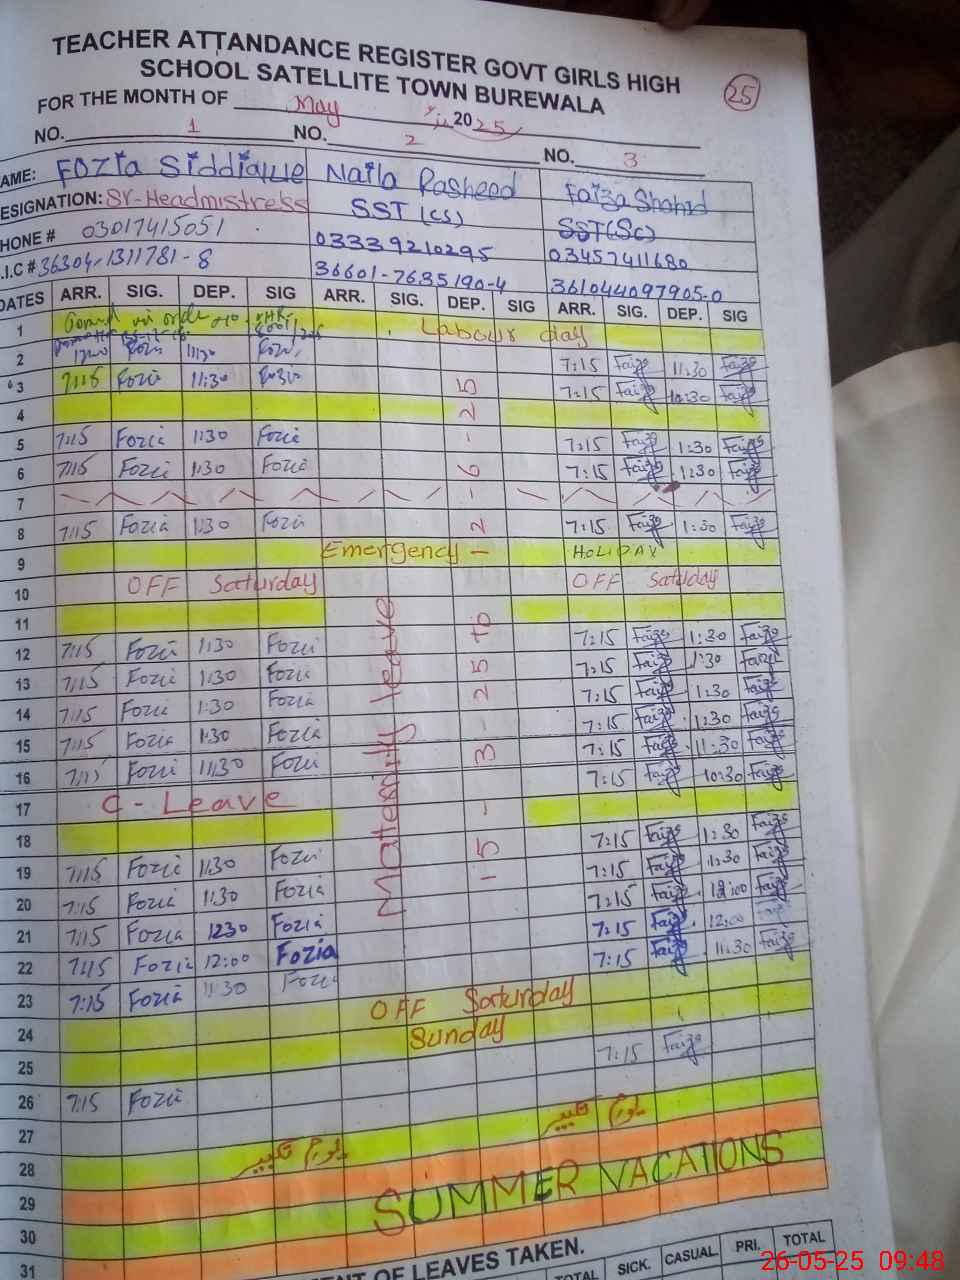 TEACHER ATTANDANCE REGISTER GOVT GIRLS HIGH
SCHOOL SATELLITE TOWN BUREWALA
25
FOR THE MONTH OF May 2025
NO. 1 NO. 2 NO. 3
AME: Fozia Siddique Naila Rasheed Faiza Shahid
ESIGNATION: Sr-Headmistress SST (CS) SST(Sc)
HONE # 03017415051 03339210295 03457411680
.I.C # 36304-1311781-8 36601-7635190-4 361044097905-0
DATES ARR. SIG. DEP. SIG ARR. SIG. DEP. SIG ARR. SIG. DEP. SIG
1 Labour day
2 11:30 7:15 Faiza 11:30 Faiza
3 7:15 Fozia 11:30 Fozia 7:15 Faiza 10:30 Faiza
4
5 7:15 Fozia 1:30 Fozia 7:15 Faiza 1:30 Faiza
6 7:15 Fozia 1:30 Fozia 7:15 Faiza 1:30 Faiza
7
8 7:15 Fozia 1:30 Fozia 7:15 Faiza 1:30 Faiza
9 Emergency HOLIDAY
10 OFF Saturday OFF Saturday
11
12 7:15 Fozia 1:30 Fozia 7:15 Faiza 1:30 Faiza
13 7:15 Fozia 1:30 Fozia 7:15 Faiza 1:30 Faiza
14 7:15 Fozia 1:30 Fozia 7:15 Faiza 1:30 Faiza
15 7:15 Fozia 1:30 Fozia 7:15 Faiza 1:30 Faiza
16 7:15 Fozia 11:30 Fozia 7:15 Faiza 11:30 Faiza
17 C - Leave 7:15 Faiza 10:30 Faiza
18
19 7:15 Fozia 1:30 Fozia 7:15 Faiza 1:30 Faiza
20 7:15 Fozia 1:30 Fozia 7:15 Faiza 1:30 Faiza
21 7:15 Fozia 1230 Fozia 7:15 Faiza 12:00 Faiza
22 7:15 Fozia 12:00 Fozia 7:15 Faiza 12:00
23 7:15 Fozia 11:30 Fozia 7:15 Faiza 11:30 Faiza
24 OFF Saturday
25 Sunday
26 7:15 Fozia 7:15 Faiza
27
28 یوم تکبیر یوم تکبیر
29 SUMMER VACATIONS
30
31
Maternity leave
15-3-25 to
2-6-25
ENT OF LEAVES TAKEN.
TOTAL SICK. CASUAL PRI. TOTAL
26-05-25 09:48